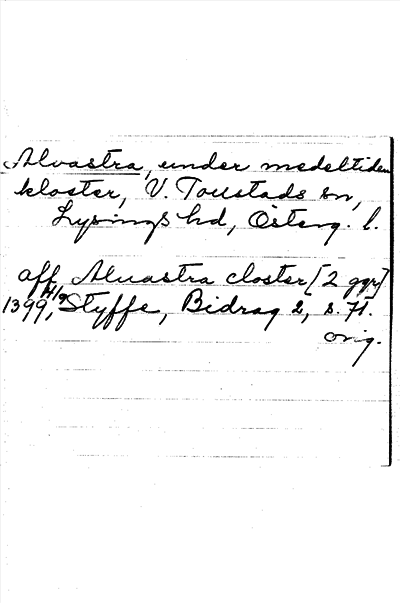 Alvastra, under medeltiden
kloster, V. Toustads sn,
Lysings hd, Österg. l.
aff Aluastra closter [2 ggr]
1399, Styffe, Bidrag 2, s. 71.
orig.